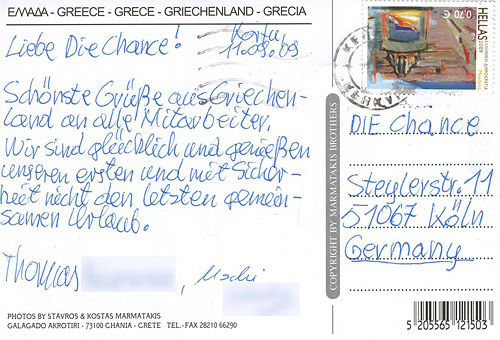 ΕΛΛΑΔΑ - GREECE - GRECE - GRIECHENLAND - GRECIA
Liebe Die Chance!
Korfu
11.09.09
Schönste Grüße aus Griechen-
land an alle Mitarbeiter.
Wir sind glücklich und genießen
unseren ersten und mit Sicher-
heit nicht den letzten gemein-
samen Urlaub.
Thomas
, Uschi
PHOTOS BY STAVROS & KOSTAS MARMATAKIS
GALAGADO AKROTIRI - 73100 CHANIA - CRETE TEL.-FAX 28210 66290
COPYRIGHT BY MARMATAKIS BROTHERS
0,70 €
HELLAS
2009
DIE Chance
Steylerstr. 11
51067 Köln
Germany
5 205565 121503